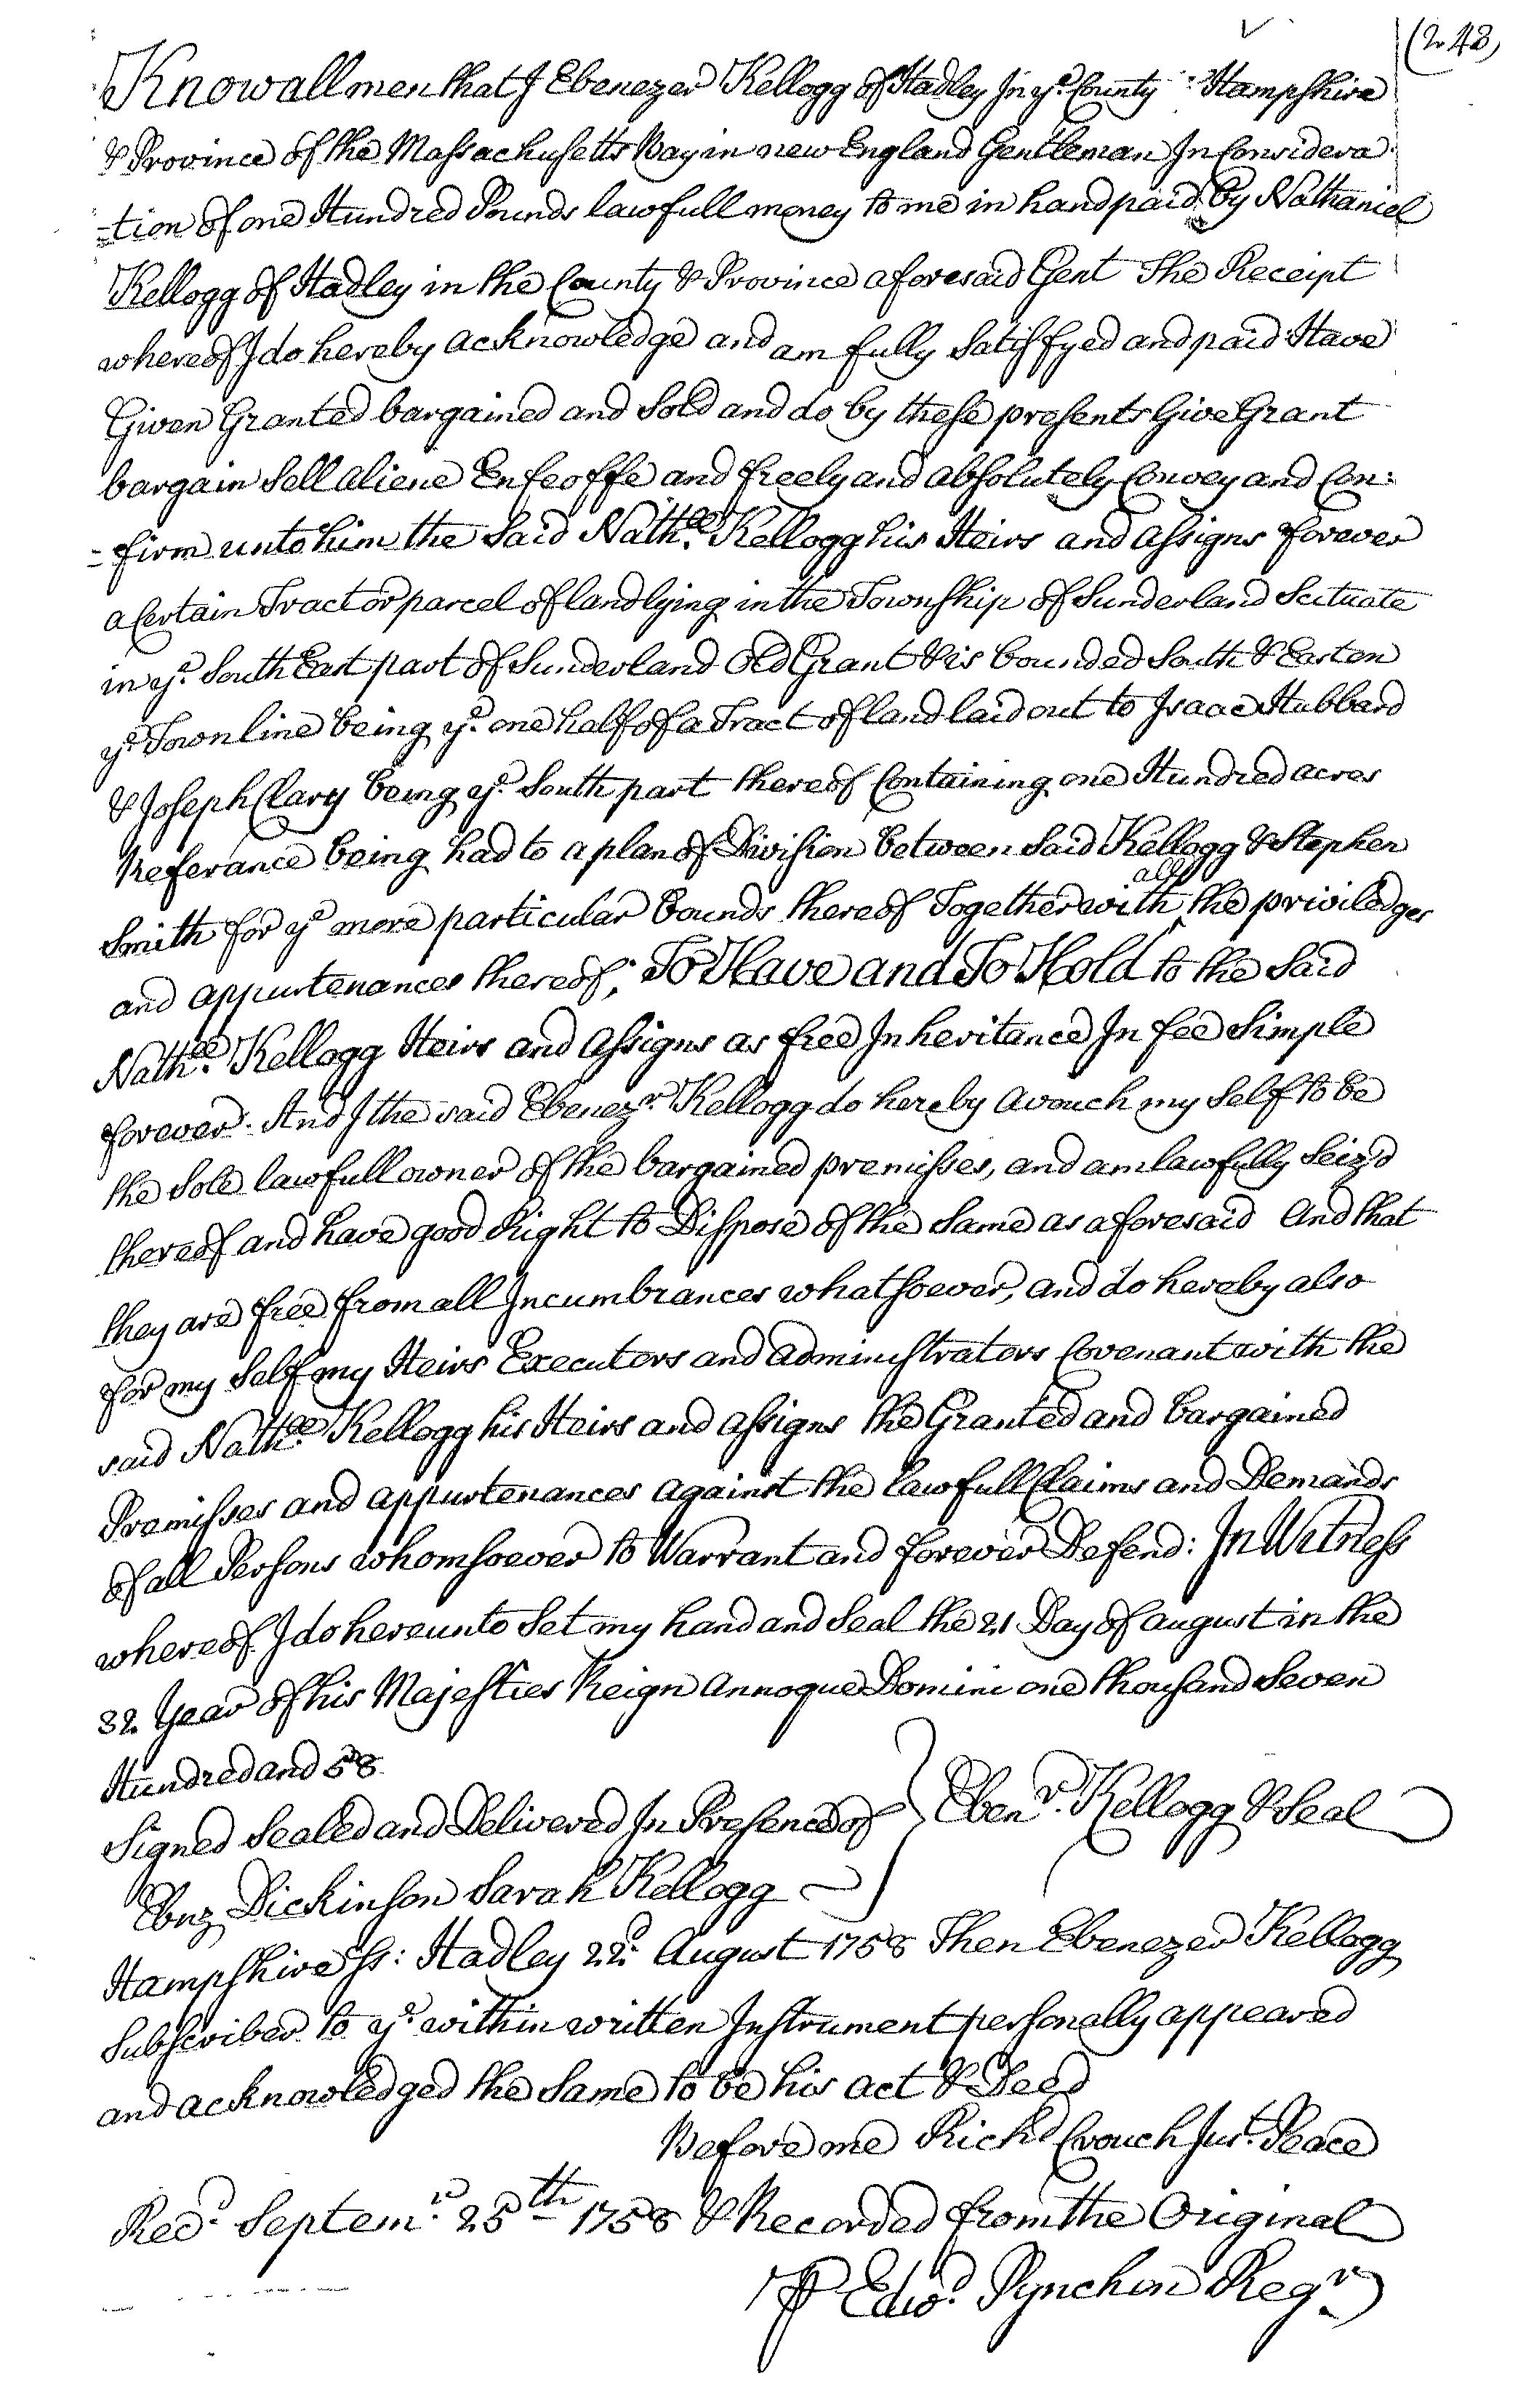 (248)
Know all men that I Ebenezer Kellogg of Hadley In ye County Hampshire
& Province of the Massachusetts Bay in new England Gentleman In Considera
-tion of one Hundred Pounds lawfull money to me in hand paid by Nathaniel
Kellogg of Hadley in the County & Province aforesaid Gent The Receipt
whereof I do hereby acknowledge and am fully Satisfyed and paid Have
Given Granted bargained and Sold and do by these presents Give Grant
bargain Sell aliene Enfeoffe and freely and absolutely Convey and Con:
-firm unto him the Said Nathll Kellogg his Heirs and assigns forever
a Certain Tract or parcel of land lying in the Township of Sunderland Scituate
in ye South East part of Sunderland Old Grant & is bounded South & East on
ye Town line being ye one half of a Tract of land laid out to Isaac Hubbard
& Joseph Clary being ye South part thereof Containing one Hundred acres
Referance being had to a plan of Division between Said Kellogg & Stephen
Smith for ye more particular bounds thereof Together with all the priviledges
and appurtenances thereof; To Have and To Hold to the Said
Nathll Kellogg Heirs and assigns as free Inheritance In fee Simple
forever. And I the said Ebenezr Kellogg do hereby avouch my Self to be
the Sole lawfull owner of the bargained premisses, and am lawfully Seiz'd
thereof and have good Right to Dispose of the Same as aforesaid And that
they are free from all Incumbrances whatsoever, and do hereby also
for my Self my Heirs Executors and administrators Covenant with the
said Nathll Kellogg his Heirs and assigns the Granted and bargained
Premisses and appurtenances against the lawfull Claims and Demands
of all Persons whomsoever to Warrant and forever Defend: In Witness
whereof I do hereunto Set my hand and Seal the 21 Day of august in the
32 Year of his Majesties Reign annoque Domini one thousand Seven
Hundred and 58
Signed Sealed and Delivered In Presence of } Ebenr. Kellogg & Seal
Ebnz Dickinson Sarah Kellogg
Hampshire Ss: Hadley 22d August 1758 Then Ebenezer Kellogg
Subscriber to ye within written Instrument personally appeared
and acknowledged the Same to be his act & Deed
Before me Richd Crouch Just. Peace
Recd. Septemr. 25th 1758 & Recorded from the Original
P Edwd. Pynchon Regr